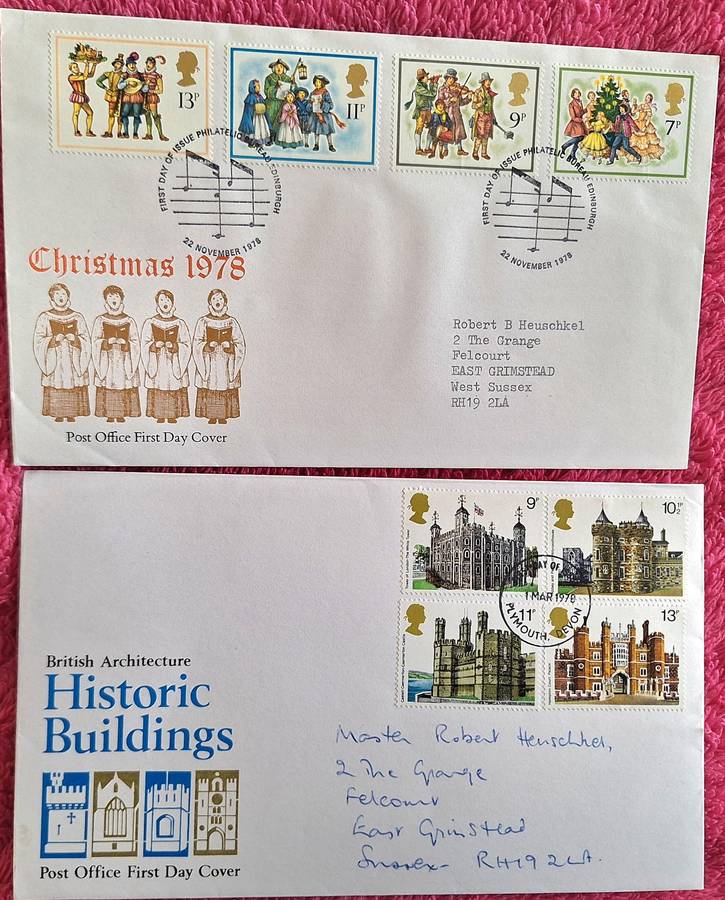 13P
11P
9P
7P
FIRST DAY OF ISSUE PHILATELIC BUREAU EDINBURGH
22 NOVEMBER 1978
FIRST DAY OF ISSUE PHILATELIC BUREAU EDINBURGH
22 NOVEMBER 1978
Christmas 1978
Robert B Heuschkel
2 The Grange
Felcourt
EAST GRIMSTEAD
West Sussex
RH19 2LA
Post Office First Day Cover
9P
10½P
11P
13P
DAY OF
1 MAR 1978
PLYMOUTH, DEVON
British Architecture
Historic
Buildings
Post Office First Day Cover
Master Robert Heuschkel,
2 The Grange
Felcourt
East Grinstead
Sussex - RH19 2LA.